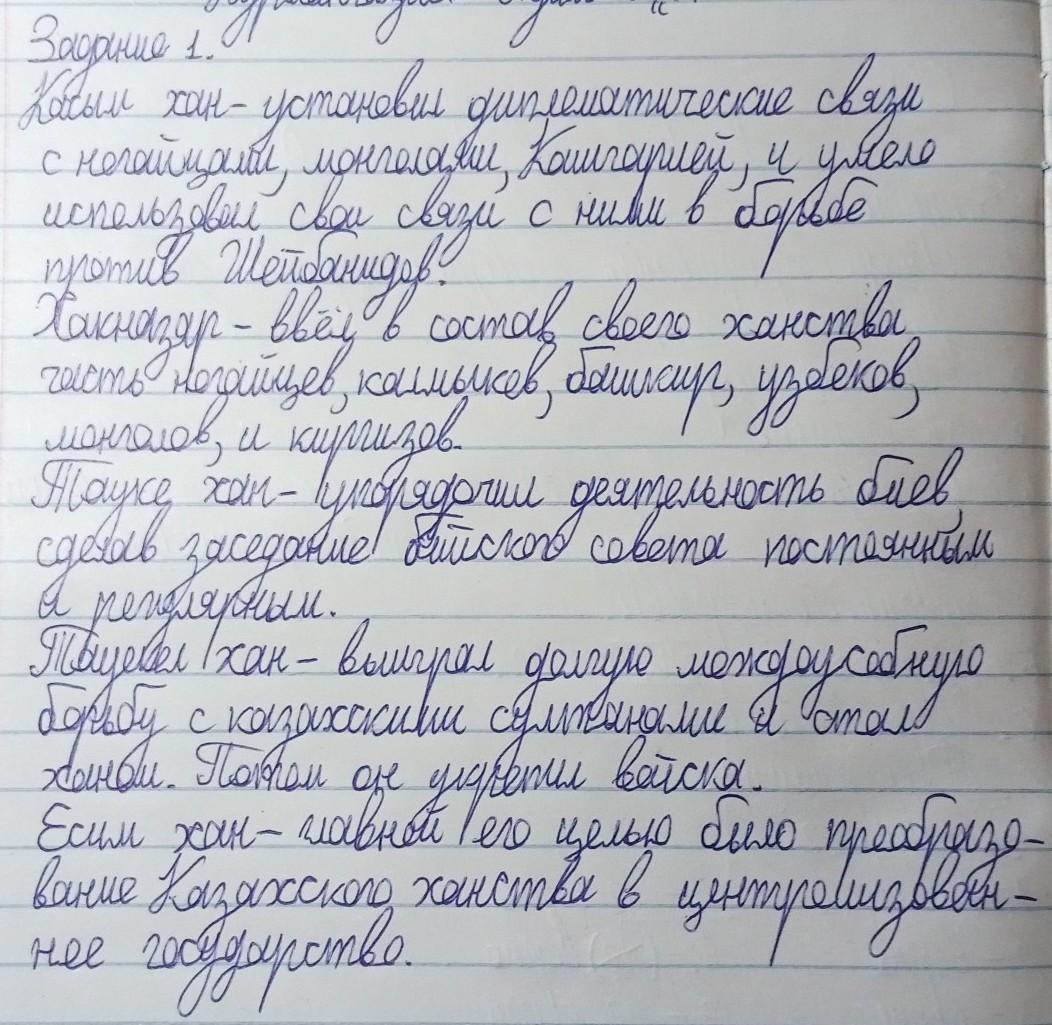 Задание 1.
Касым хан - установил дипломатические связи
с ногайцами, монголами, Кашгарией, и умело
использовал свои связи с ними в борьбе
против Шейбанидов.
Хакназар - ввёл в состав своего ханства
часть ногайцев, калмыков, башкир, узбеков,
монголов, и киргизов.
Тауке хан - упорядочил деятельность биев,
сделав заседание бийского совета постоянным
и регулярным.
Тауекел хан - выиграл долгую междоусобную
борьбу с казахскими султанами и стал
ханом. Потом он укрепил войска.
Есим хан - главной его целью было преобразо-
вание Казахского ханства в централизован-
ное государство.